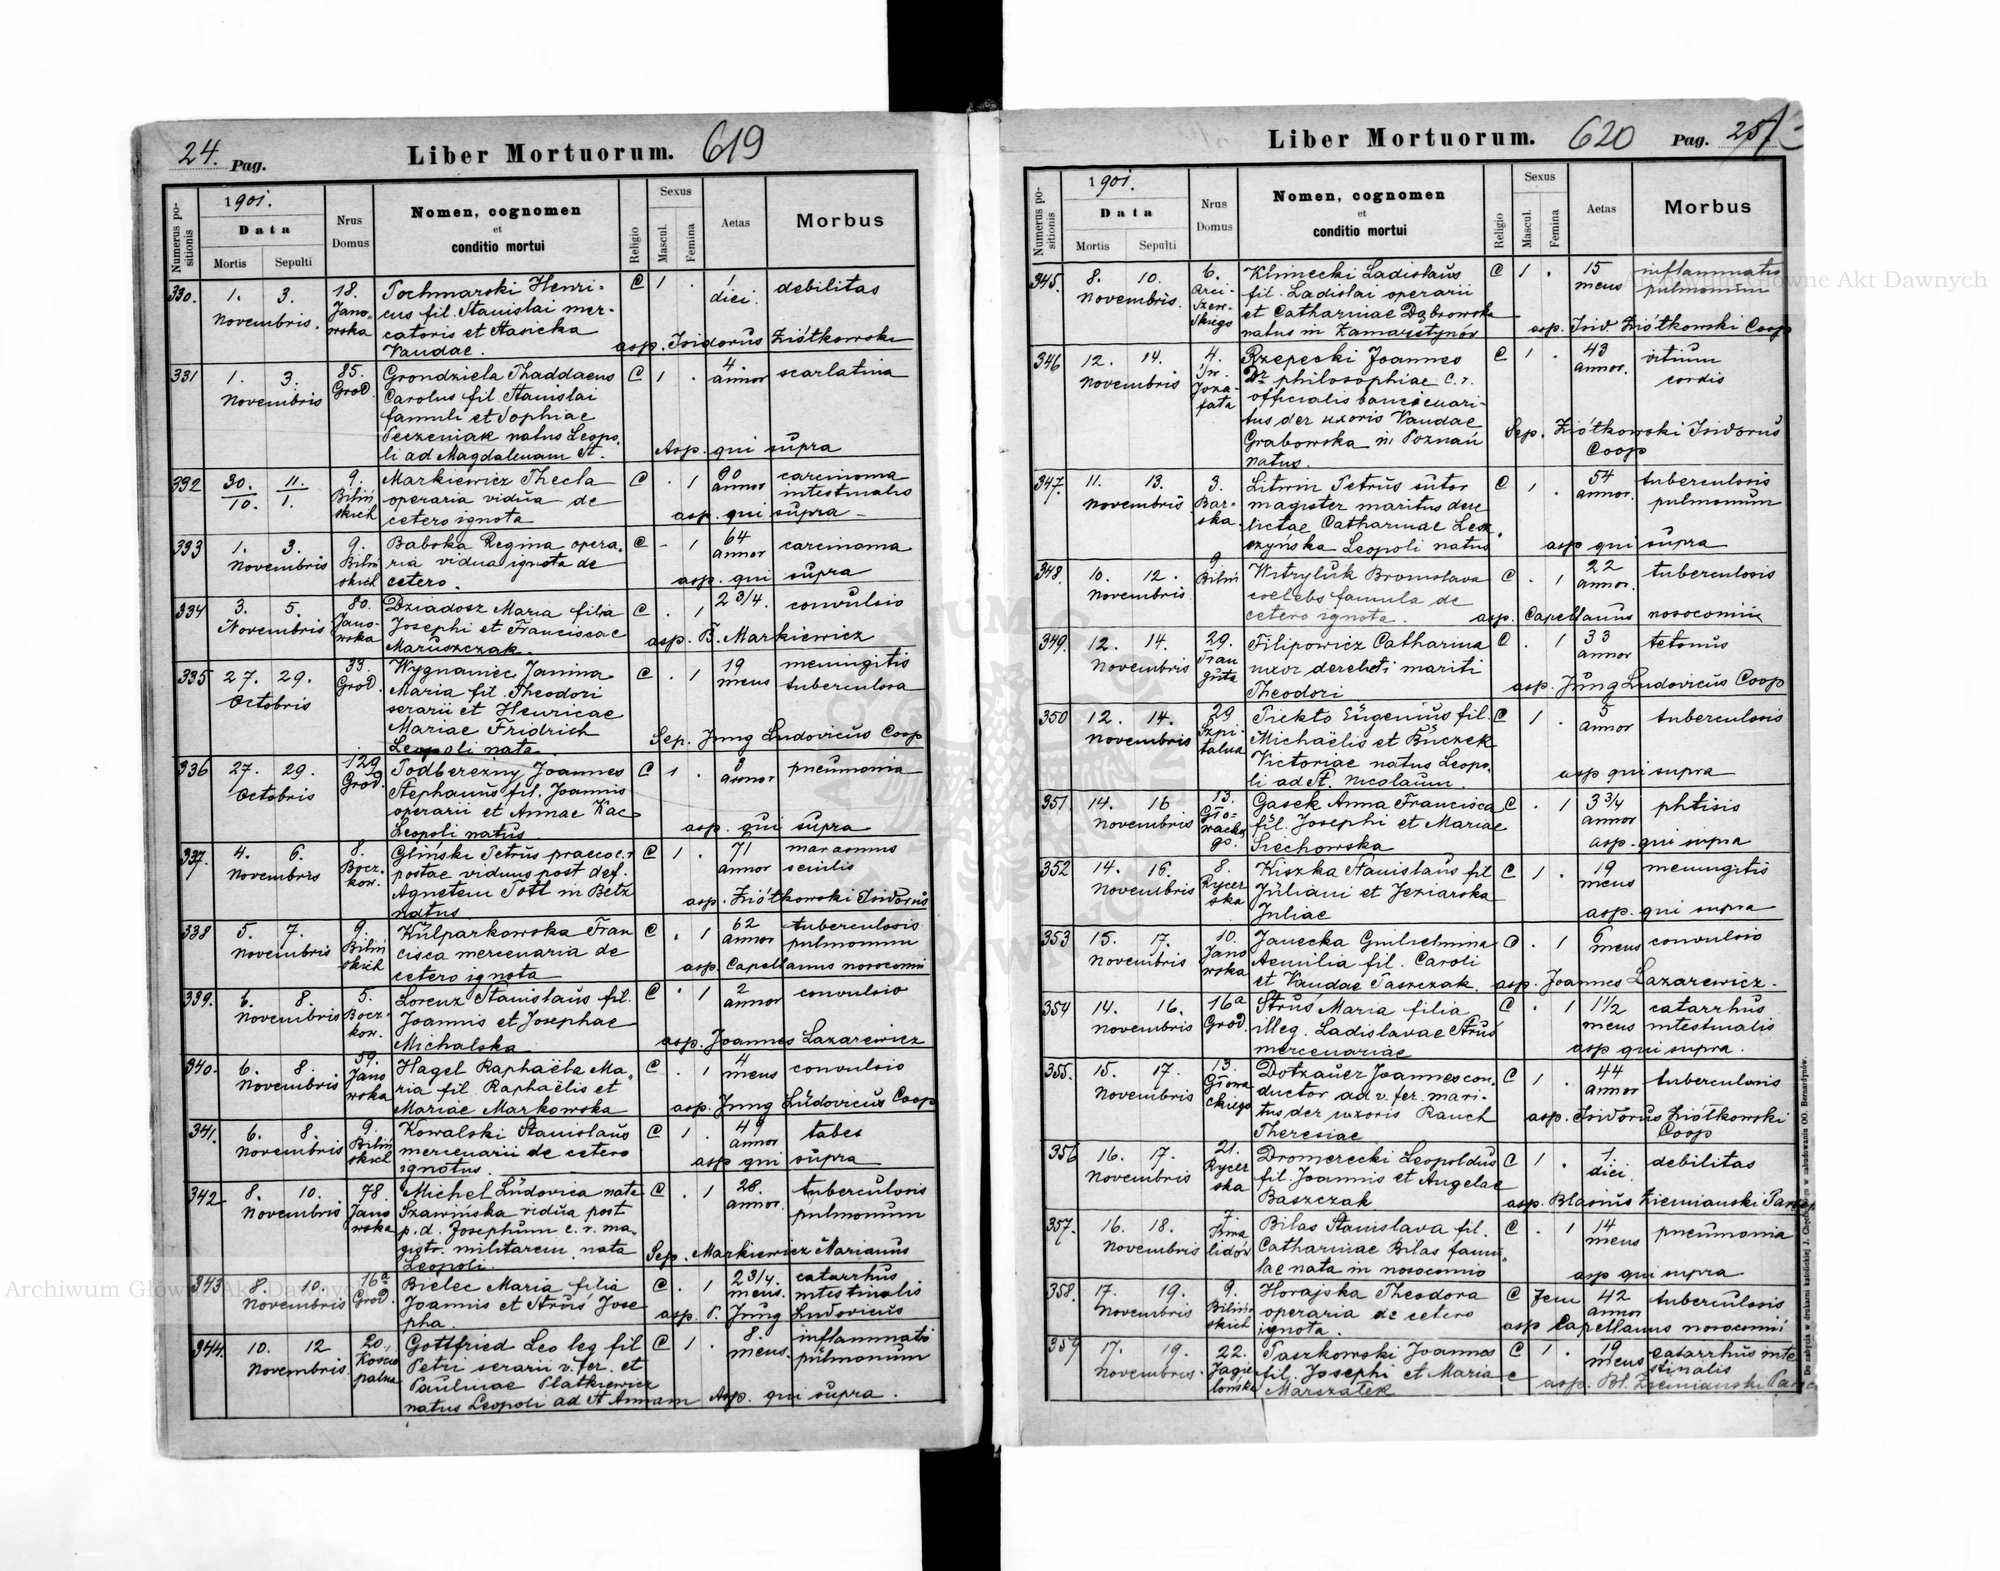 24. Pag.
Liber Mortuorum. 619
Numerus positionis
1901.
Data
Mortis Sepulti
Nrus Domus
Nomen, cognomen
et
conditio mortui
Religio
Sexus
Mascul. Femina
Aetas
Morbus
330. 1. 3. 18. Pochmarski Henri- C 1 . 1 debilitas
Novembris. Jano- cus fil. Stanislai mer- diei.
wska catoris et Hasicka
Vandae. asp. Isidorus Ziółkowski
331 1. 3. 85. Grondziela Thaddaeus C 1 . 4. scarlatina
Novembris Grod. Carolus fil Stanislai annor
famuli et Sophiae
Peczeniak natus Leopo-
li ad Magdalenam St. Asp. qui supra
332 30. 11. 9. Markiewicz Thecla C . 1 90 carcinoma
10. 1. Biliń operaria vidua de annor intestinalis
skich cetero ignota asp. qui supra
333 1. 3. 9. Babska Regina opera- C - 1 64 carcinoma
Novembris Biliń ria vidua ignota de annor
skich cetero. asp. qui supra
334 3. 5. 80. Dziadosz Maria filia C . 1 2 3/4. convulsio
Novembris Jano- Josephi et Franciscae
wska Maruszczak. asp. B. Markiewicz
335 27. 29. 33. Wygnaniec Janina C . 1 19 meningitis
Octobris Grod. Maria fil. Theodori mens tuberculosa
serarii et Henricae
Mariae Fridrich
Leopoli nata. Sep. Jung Ludovicus Coop
336 27. 29. 129 Podberezny Joannes C 1 . 3 pneumonia
Octobris Grod. Stephanus fil. Joannis annor
operarii et Annae Kac
Leopoli natus. asp. qui supra
337. 4. 6. 8. Gliński Petrus praeco c.r C 1 . 71 marasmus
Novembris Bocz- postae viduus post def. annor senilis
kow. Agnetem Tott in Betz
natus. asp. Ziółkowski Isidorus
338 5. 7. 9. Kulparkowska Fran C . 1 62 tuberculosis
Novembris Biliń cisca mercenaria de annor pulmonum
skich cetero ignota asp. Capellanus nosocomii
339. 6. 8. 5. Lorenz Stanislaus fil. C . 1 2 convulsio
Novembris Bocz- Joannis et Josephae annor
kow. Michalska asp. Joannes Lazarewicz
340. 6. 8. 59. Hagel Raphaëla Ma- C . 1 4 convulsio
Novembris Jano ria fil. Raphaëlis et mens
wska Mariae Markowska asp. Jung Ludovicus Coop
341. 6. 8. 9. Kowalski Stanislaus C 1 . 49 tabes
Novembris Biliń mercenarii de cetero annor
skich ignotus. asp qui supra
342 8. 10. 78. Michel Ludovica nata C . 1 28. tuberculosis
Novembris Jano Szawińska vidua post annor. pulmonum
wska p. d. Josephum c. r. ma-
gistr. militarem nata
Leopoli. Sep. Markiewicz Marianus
343 8. 10. 16a Bielec Maria filia C . 1 2 3/4. catarrhus
Novembris Grod. Joannis et Struś Jose mens. intestinalis
pha. asp. P. Jung Ludovicus
344. 10. 12 20. Gottfried Leo leg fil C 1 . 8. inflammatio
Novembris. Petri serarii v. fer. et mens. pulmonum
Paulinae Platkiewicz
natus Leopoli ad St Annam Asp. qui supra.
Liber Mortuorum. 620 Pag.
Numerus positionis
1901.
Data
Mortis Sepulti
Nrus Domus
Nomen, cognomen
et
conditio mortui
Religio
Sexus
Mascul. Femina
Aetas
Morbus
345. 8. 10. 6. Klimecki Ladislaus C 1 . 15 inflammatio
Novembris. Arci- fil. Ladislai operarii mens pulmonum
szew- et Catharinae Dąbrowska
skiego natus in Zamarstynów asp. Isid Ziółkowski Coop
346 12. 14. 4. Rzepecki Joannes C 1 . 43 vitium
Novembris Św. Dr philosophiae c. r. annor. cordis
Joza- officialis
fata tus der uxoris Vandae
Grabowska in Poznań Sep. Ziółkowski Isidorus
natus. Coop
347. 11. 13. 3. Litwin Petrus sutor C 1 . 54 tuberculosis
Novembris Bar- magister maritus dere annor. pulmonum
ska. lictae Catharinae Lesz
czyńska Leopoli natus asp qui supra
348. 10. 12. 9 Witryluk Bronislava C . 1 22 tuberculosis
Novembris Biliń coelebs famula de annor.
cetero ignota. asp. Capellanus nosocomii
349. 12. 14. 29. Filipowicz Catharina C . 1 33 tetanus
Novembris uxor derelicti mariti annor
Theodori asp. Jung Ludovicus Coop
350 12. 14. 29 Piekto Eugenius fil. C 1 . 5 tuberculosis
Novembris Szpi- Michaëlis et Buczek annor
talna Victoriae natus Leopo-
li ad St. Nicolaum. asp qui supra
351 14. 16 13. Gasek Anna Francisca C . 1 3 3/4 phtisis
Novembris Gło- fil. Josephi et Mariae annor
wackie go. Siechowska asp. qui supra
352 14. 16. 8. Kiszka Stanislaus fil C 1 . 19 meningitis
Novembris Rycer Juliani et Jeziarska mens
ska Juliae asp. qui supra
353 15. 17. 10. Janecka Guilielmina C . 1 6 convulsio
Novembris Jano Aemilia fil. Caroli mens
wska et Vandae Paszczak. asp. Joannes Lazarewicz.
354 14. 16. 16a Struś Maria filia C . 1 1 1/2 catarrhus
Novembris Grod. illeg. Ladislavae Struś mens intestinalis
mercenariae asp qui supra.
355. 15. 17. 13. Dotzauer Joannes con- C 1 . 44 tuberculosis
Novembris Głowa ductor ad v. fer. mari- annor
ckiego tus der uxoris Rauch asp. Isidorus Ziółkowski
Theresiae Coop
356 16. 17. 21. Dromerecki Leopoldus C 1 . 1. debilitas
Novembris Rycer fil. Joannis et Angelae diei.
ska Baszczak asp. Blasius Ziemianski
357. 16. 18. 7. Bilas Stanislava fil. C . 1 14 pneumonia
Novembris Inwa Catharinae Bilas famu- mens
lidów lae nata in nosocomio asp qui supra
358. 17. 19. 9. Horajska Theodora C Fem 42 tuberculosis
Novembris Biliń- operaria de cetero annor
skich ignota. asp Capellanus nosocomii
359 17. 19. 22. Paszkowski Joannes C 1 . 19 catarrhus inte
Novembris. Jagie fil. Josephi et Maria e mens stinalis
lońska Marszałek asp. Bl. Ziemianski
Do nabycia w drukarni katolickiej J. Chęcińskiego w zabudowaniu OO. Bernardynów.
Archiwum Główne Akt Dawnych
Archiwum Główne Akt Dawnych